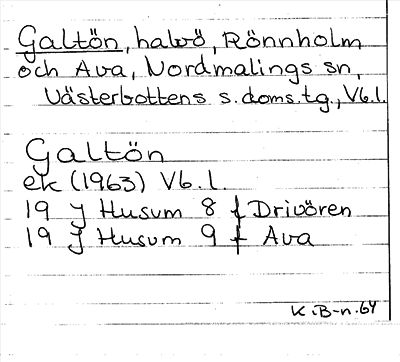 Galtön, halvö, Rönnholm
och Ava, Nordmalings sn,
Västerbottens s. doms.tg., Vb.l.
Galtön
ek (1963) Vb.l.
19 J Husum 8 f Drivören
19 J Husum 9 f Ava
K.B-n. 64